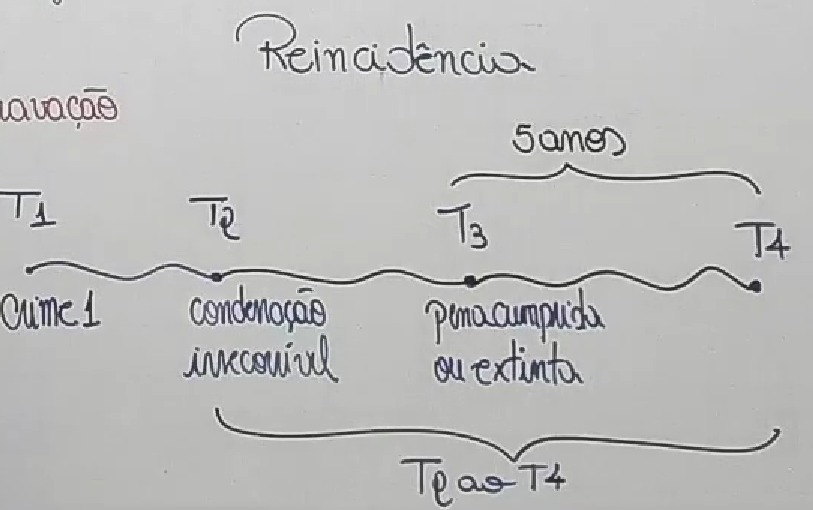 Reincidência
ravação
5 anos
T1
T2
T3
T4
crime 1
condenação
irrecorrível
pena cumprida
ou extinta
T2 ao T4